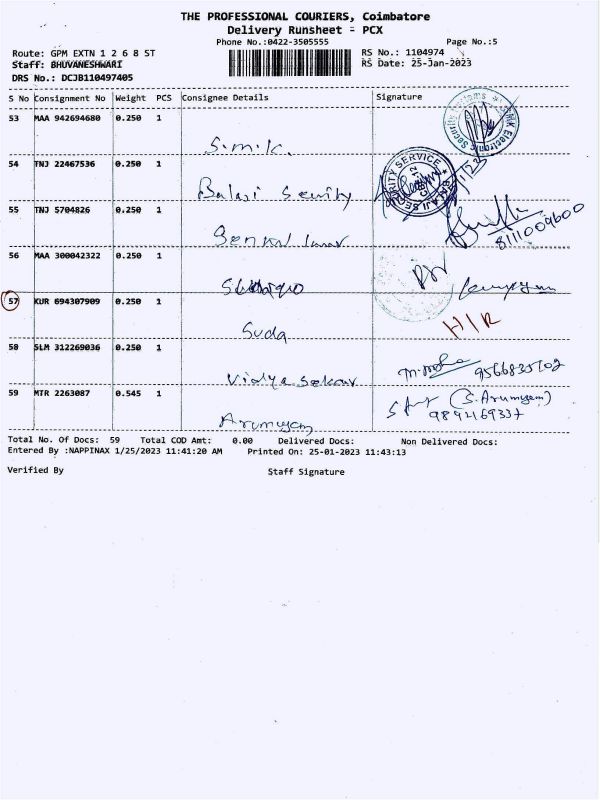 THE PROFESSIONAL COURIERS, Coimbatore
Delivery Runsheet - PCX
Phone No.:0422-3505555
Page No.:5
Route: GPM EXTN 1 2 6 8 ST
RS No.: 1104974
Staff: BHUVANESHWARI
RS Date: 25-Jan-2023
DRS No.: DCJB110497405
S No Consignment No Weight PCS Consignee Details Signature
53 MAA 942694680 0.250 1
S.M.K.
54 TNJ 22467536 0.250 1
Balaji Security
55 TNJ 5704826 0.250 1
8111009600
56 MAA 300042322 0.250 1
57 KUR 694307909 0.250 1
Suda
H/R
58 SLM 312269036 0.250 1
Vidya Sekar
59 MTR 2263087 0.545 1
(S. Arumugam)
Arumugam
Total No. Of Docs: 59 Total COD Amt: 0.00 Delivered Docs: Non Delivered Docs:
Entered By :NAPPINAX 1/25/2023 11:41:20 AM Printed On: 25-01-2023 11:43:13
Verified By Staff Signature